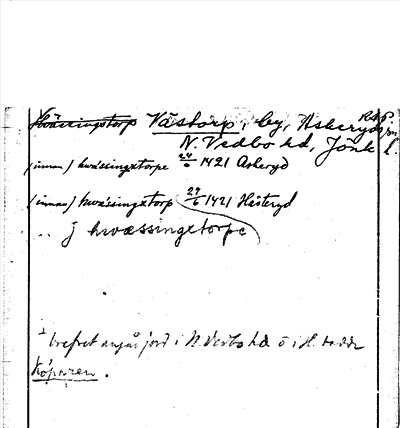 RAP.
Hvässingstorp Västorp, by, Askeryds sn
N. Vedbo hd, Jönk l.
(innan) hwæssingxtorpe 24/6 1421 Askeryd
(innan) hwæssingxtorp 29/6 1421 Hästeryd
.. j hwæssingxtorpe
brefvet angår jord i N. Vedbo hd o i H.
Köparen.